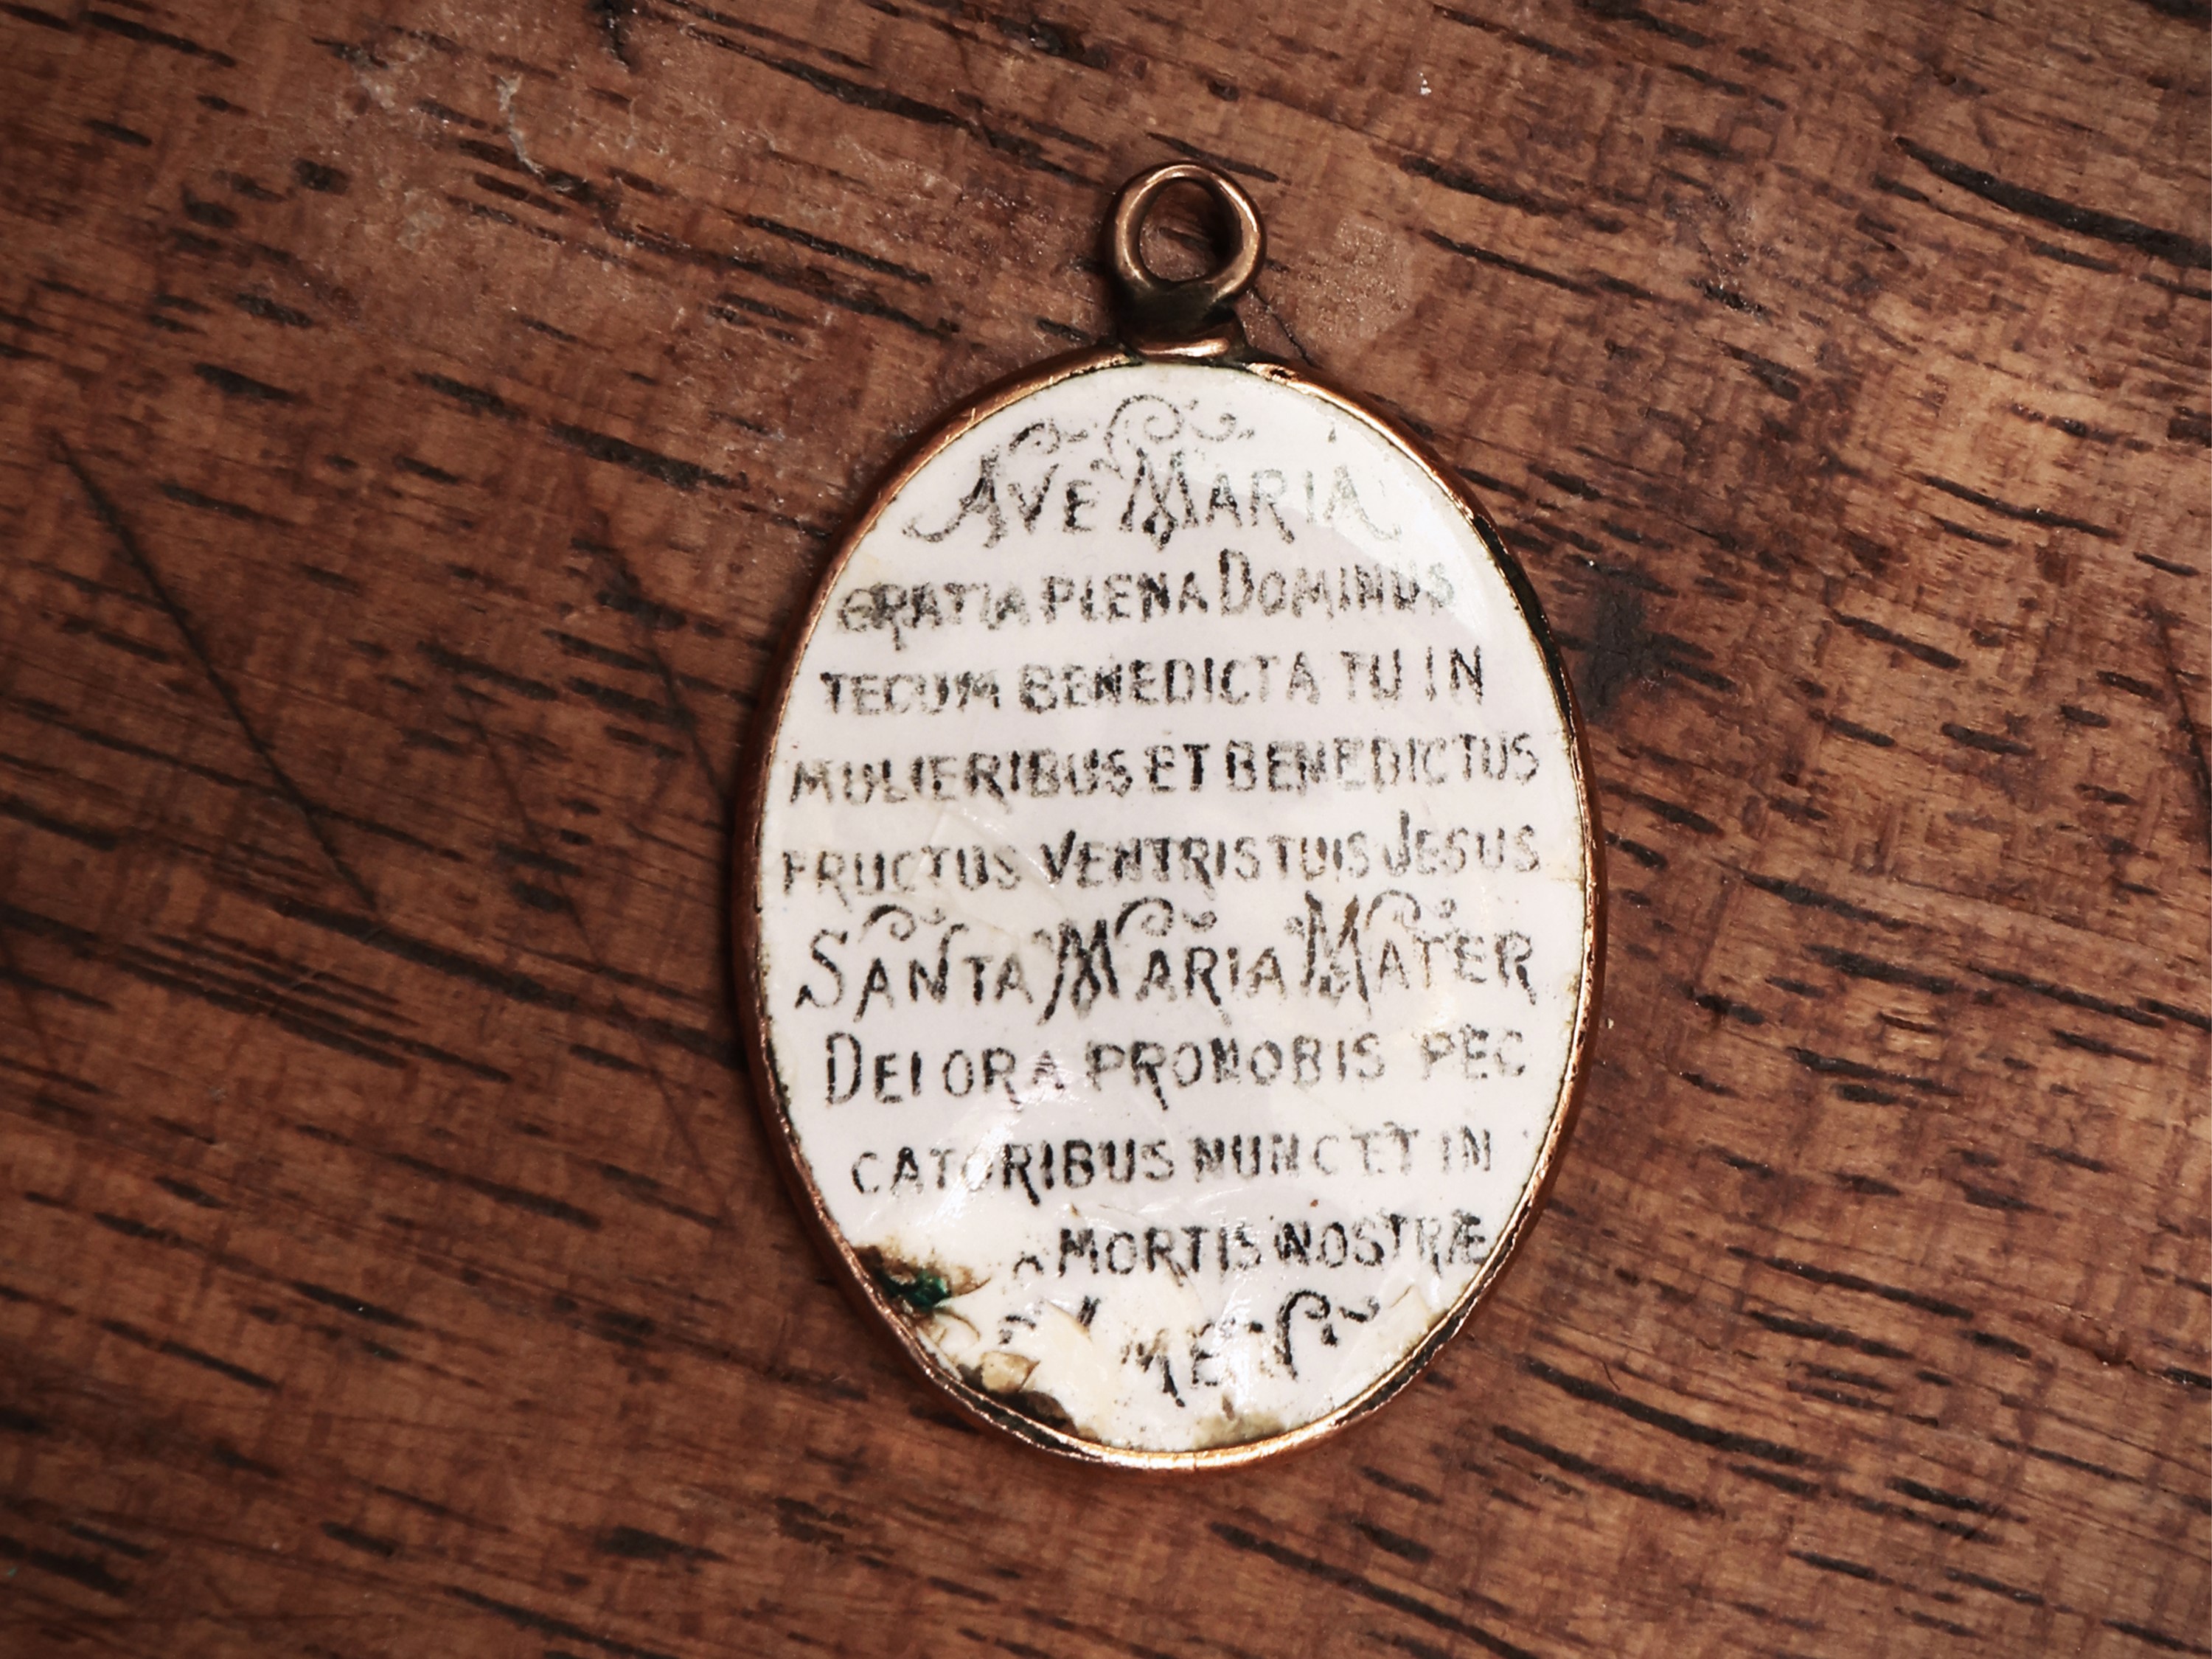 AVE MARIA
GRATIA PLENA DOMINUS
TECUM BENEDICTA TU IN
MULIERIBUS ET BENEDICTUS
FRUCTUS VENTRIS TUIS JESUS
SANTA MARIA MATER
DEI ORA PRO NOBIS PEC
CATORIBUS NUNC ET IN
MORTIS NOSTRÆ